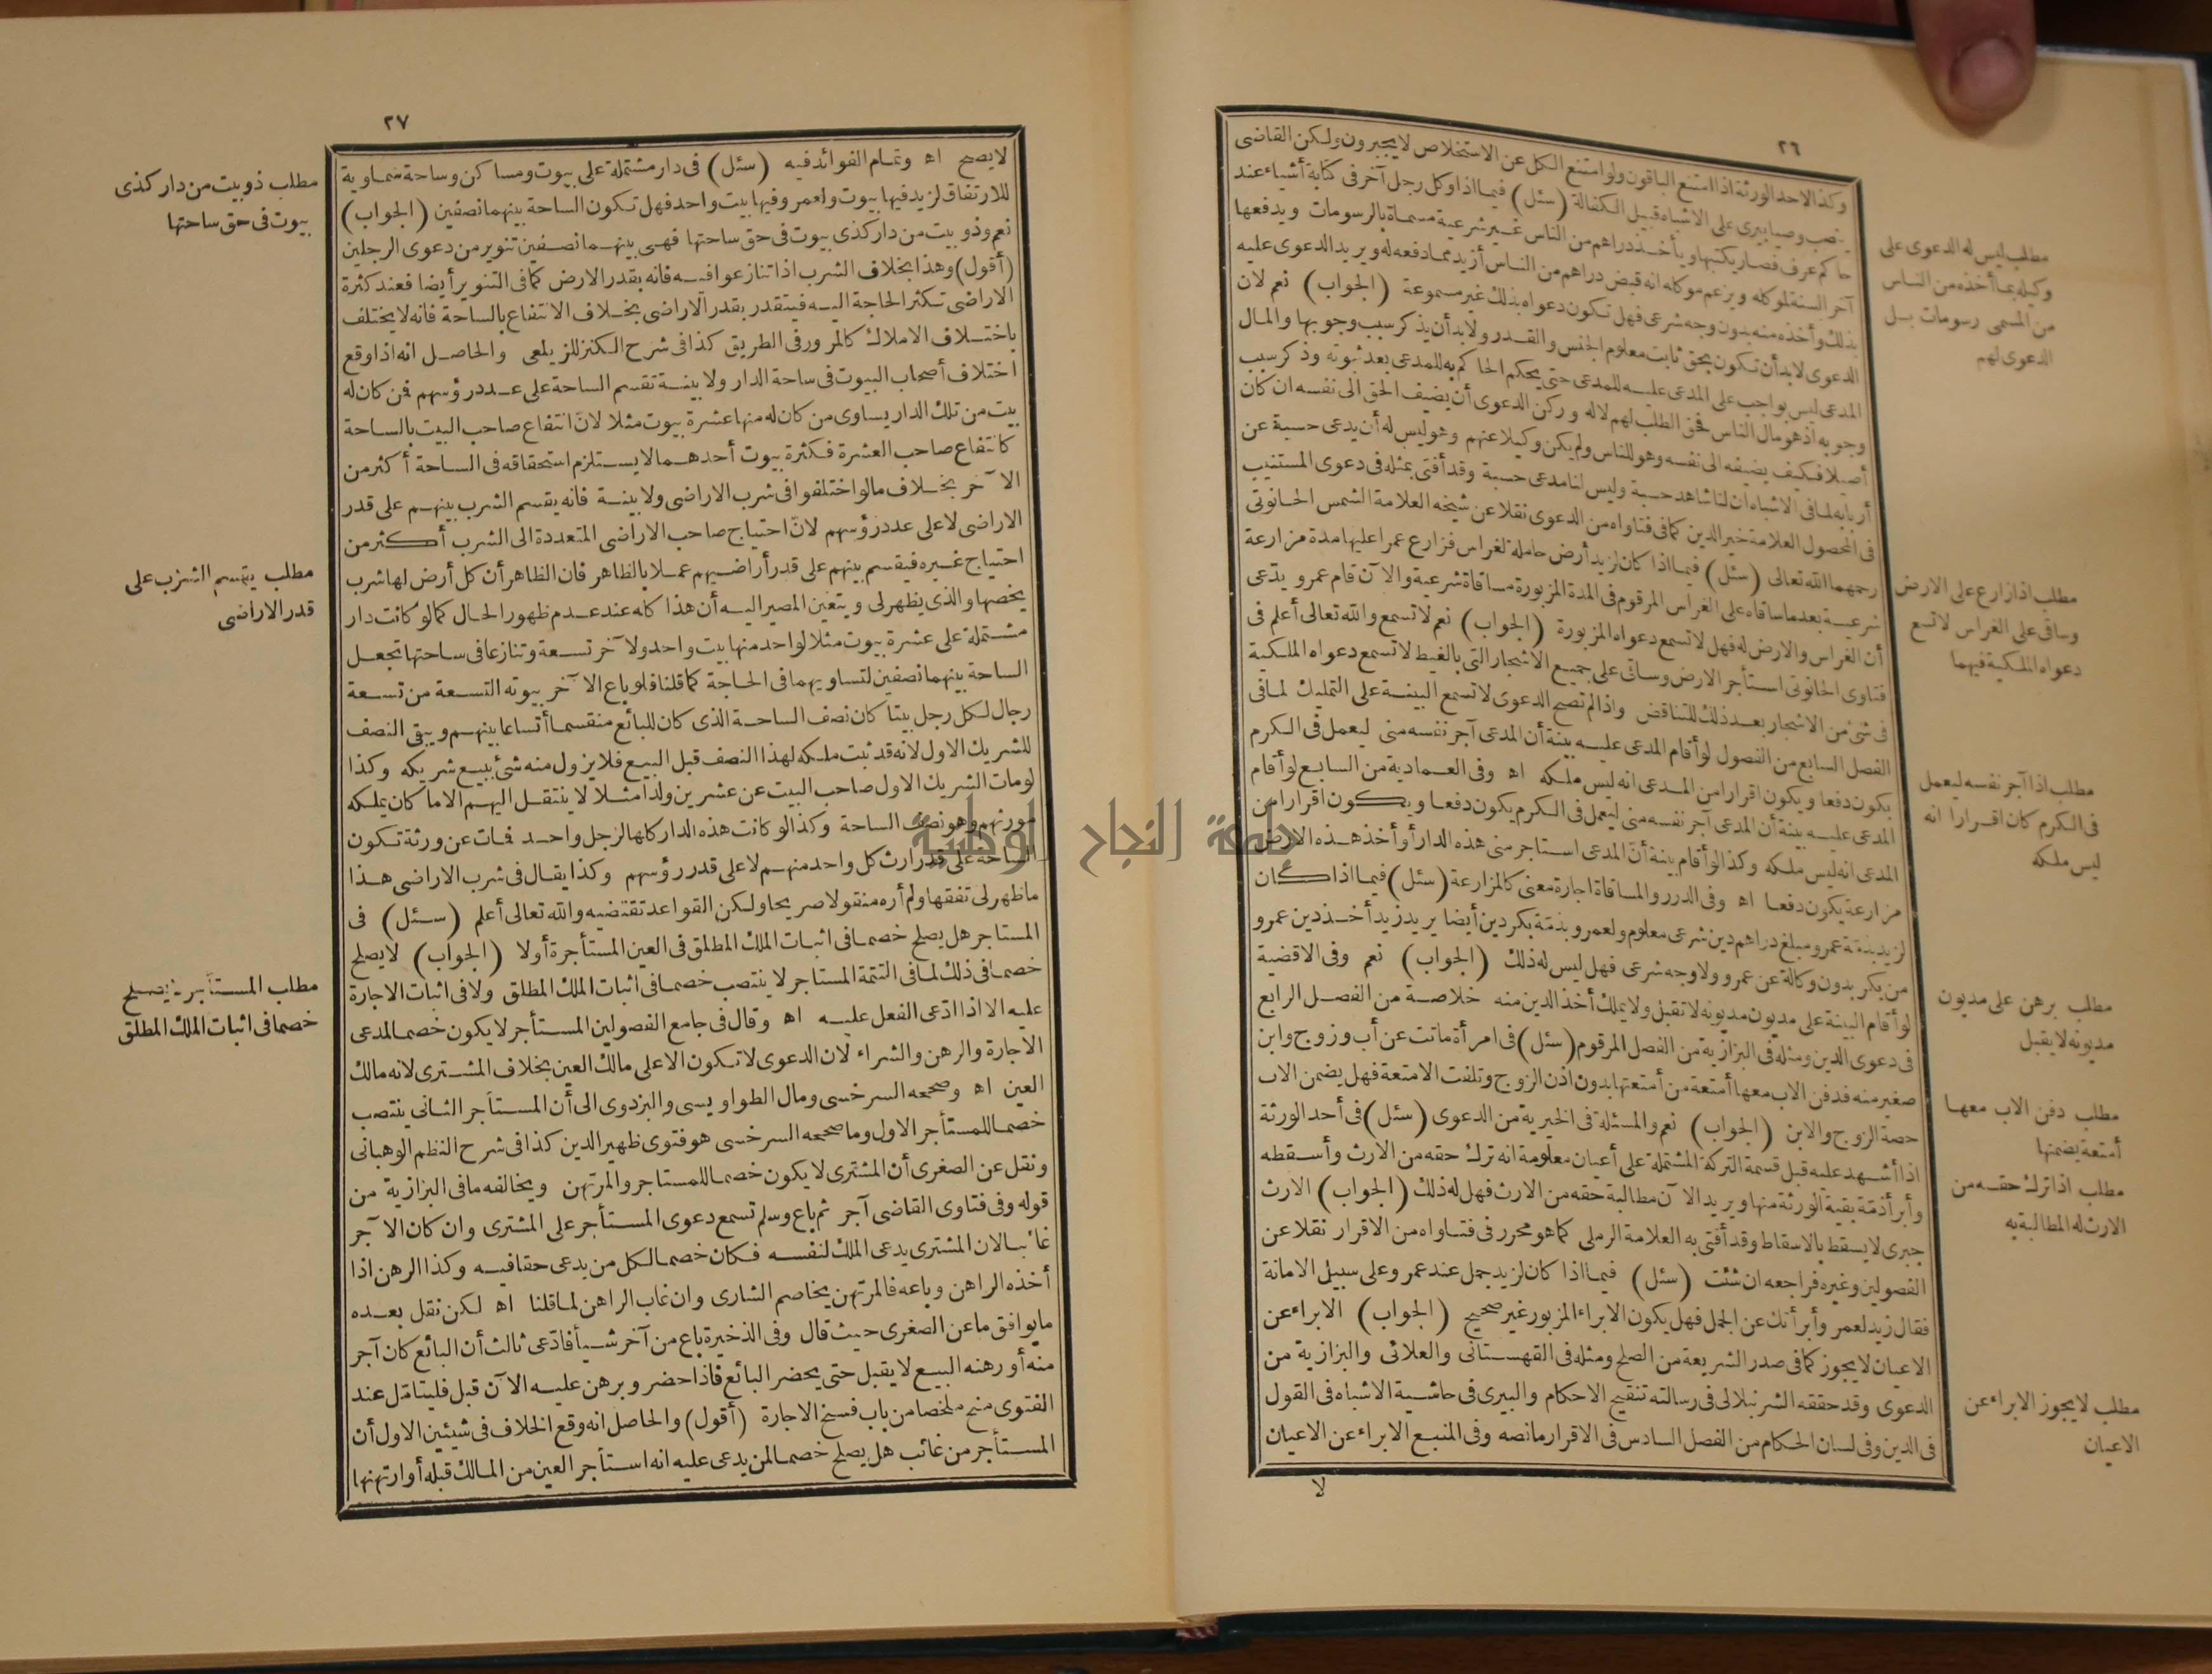 ٢٦
وكذا لاحد الورثة اذا امتنع الباقون ولو امتنع الكل عن الاستخلاص لا يجبرون ولكن القاضى
ينصب وصيا بيرى على الاشباه قبيل الكفالة (سئل) فيما اذا وكل رجل آخر فى كتابة أشياء عند
حاكم عرف فصار يكتبها ويأخذ دراهم من الناس غير شرعية مسماة بالرسومات ويدفعها
آخر السنة لموكله ويزعم موكله انه قبض دراهم من الناس أزيد مما دفعه له ويريد الدعوى عليه
بذلك وأخذه منه بدون وجه شرعى فهل تكون دعواه بذلك غير مسموعة (الجواب) نعم لان
الدعوى لابد أن تكون بحق ثابت معلوم الجنس والقدر ولابد أن يذكر سبب وجوبها والمال
المدعى ليس بواجب على المدعى عليه للمدعى حتى يحكم الحاكم به للمدعى بعد ثبوته وذكر سبب
وجوبه اذ هو مال الناس فحق الطلب لهم لا له وركن الدعوى أن يضيف الحق الى نفسه ان كان
أصيلا فكيف يضيفه الى نفسه وهو للناس ولم يكن وكيلا عنهم وهو ليس له أن يدعى حسبة عن
أربابه لما فى الاشباه ان لنا شاهد حسبة وليس لنا مدعى حسبة وقد أفتى بمثله فى دعوى المستنيب
فى المحصول العلامة خير الدين كما فى فتاواه من الدعوى نقلا عن شيخه العلامة الشمس الحانوتى
رحمهما الله تعالى (سئل) فيما اذا كان لزيد أرض حاملة لغراس فزارع عمرا عليها مدة مزارعة
شرعية بعد ما ساقاه على الغراس المرقوم فى المدة المزبورة مساقاة شرعية والآن قام عمرو يدّعى
أن الغراس والارض له فهل لا تسمع دعواه المزبورة (الجواب) نعم لا تسمع والله تعالى أعلم فى
فتاوى الحانوتى استأجر الارض وساقى على جميع الاشجار التى بالغيط لا تسمع دعواه الملكية
فى شئ من الاشجار بعد ذلك للتناقض واذا لم تصح الدعوى لا تسمع البينة على التمليك لما فى
الفصل السابع من الفصول لو أقام المدعى عليه بينة أن المدعى آجر نفسه منى ليعمل فى الكرم
يكون دفعا ويكون اقرارا من المدعى انه ليس ملكه اه وفى العمادية من السابع لو أقام
المدعى عليه بينة أن المدعى آجر نفسه منى ليعمل فى الكرم يكون دفعا ويكون اقرارا من
المدعى انه ليس ملكه وكذا لو أقام بينة أنّ المدعى استأجر منى هذه الدار أو أخذ هذه الارض
مزارعة يكون دفعا اه وفى الدرر والمساقاة اجارة معنى كالمزارعة (سئل) فيما اذا كان
لزيد بذمّة عمرو مبلغ دراهم دين شرعى معلوم ولعمرو بذمّة بكر دين أيضا يريد زيد أخذ دين عمرو
من بكر بدون وكالة عن عمرو ولا وجه شرعى فهل ليس له ذلك (الجواب) نعم وفى الاقضية
لو أقام البينة على مديون مديونه لا تقبل ولا يملك أخذ الدين منه خلاصة من الفصل الرابع
فى دعوى الدين ومثله فى البزازية من الفصل المرقوم (سئل) فى امرأة ماتت عن أب وزوج وابن
صغير منه فدفن الاب معها أمتعة من أمتعتها بدون اذن الزوج وتلفت الامتعة فهل يضمن الاب
حصة الزوج والابن (الجواب) نعم والمسئلة فى الخيرية من الدعوى (سئل) فى أحد الورثة
اذا أشهد عليه قبل قسمة التركة المشتملة على أعيان معلومة انه ترك حقه من الارث وأسقطه
وأبرأ ذمّة بقية الورثة منها ويريد الآن مطالبة حقه من الارث فهل له ذلك (الجواب) الارث
جبرى لا يسقط بالاسقاط وقد أفتى به العلامة الرملى كما هو محرر فى فتاواه من الاقرار نقلا عن
الفصولين وغيره فراجعه ان شئت (سئل) فيما اذا كان لزيد جمل عند عمرو على سبيل الامانة
فقال زيد لعمرو أبرأتك عن الجمل فهل يكون الابراء المزبور غير صحيح (الجواب) الابراء عن
الاعيان لا يجوز كما فى صدر الشريعة من الصلح ومثله فى القهستانى والعلائى والبزازية من
الدعوى وقد حققه الشرنبلالى فى رسالته تنقيح الاحكام والبيرى فى حاشية الاشباه فى القول
فى الدين وفى لسان الحكام من الفصل السادس فى الاقرار مانصه وفى المنبع الابراء عن الاعيان
لا
مطلب ليس له الدعوى على
وكيله بما أخذه من الناس
من المسمى رسومات بل
الدعوى لهم
مطلب اذا زارع على الارض
وساقى على الغراس لا تسمع
دعواه الملكية فيهما
مطلب اذا آجر نفسه ليعمل
فى الكرم كان اقرارا انه
ليس ملكه
مطلب برهن على مديون
مديونه لا يقبل
مطلب دفن الاب معها
أمتعة يضمنها
مطلب اذا ترك حقه من
الارث له المطالبة به
مطلب لا يجوز الابراء عن
الاعيان
٢٧
لا يصح اه وتمام الفوائد فيه (سئل) فى دار مشتملة على بيوت ومساكن وساحة سماوية
للارتفاق لزيد فيها بيوت ولعمرو فيها بيت واحد فهل تكون الساحة بينهما نصفين (الجواب)
نعم وذو بيت من دار كذى بيوت فى حق ساحتها فهى بينهما نصفين تنوير من دعوى الرجلين
(أقول) وهذا بخلاف الشرب اذا تنازعوا فيه فانه بقدر الارض كما فى التنوير أيضا فعند كثرة
الاراضى تكثر الحاجة اليه فيتقدر بقدر الاراضى بخلاف الانتفاع بالساحة فانه لا يختلف
باختلاف الاملاك كالمرور فى الطريق كذا فى شرح الكنز للزيلعى والحاصل انه اذا وقع
اختلاف أصحاب البيوت فى ساحة الدار ولا بينة تقسم الساحة على عدد رؤسهم فمن كان له
بيت من تلك الدار يساوى من كان له منها عشرة بيوت مثلا لانّ انتفاع صاحب البيت بالساحة
كانتفاع صاحب العشرة فكثرة بيوت أحدهما لا يستلزم استحقاقه فى الساحة أكثر من
الآخر بخلاف ما لو اختلفوا فى شرب الاراضى ولا بينة فانه يقسم الشرب بينهم على قدر
الاراضى لا على عدد رؤسهم لانّ احتياج صاحب الاراضى المتعددة الى الشرب أكثر من
احتياج غيره فيقسم بينهم على قدر أراضيهم عملا بالظاهر فان الظاهر أن كل أرض لها شرب
يخصها والذى يظهر لى ويتعين المصير اليه أن هذا كله عند عدم ظهور الحال كما لو كانت دار
مشتملة على عشرة بيوت مثلا لواحد منها بيت واحد ولآخر تسعة وتنازعا فى ساحتها تجعل
الساحة بينهما نصفين لتساويهما فى الحاجة كما قلنا فلو باع الآخر بيوته التسعة من تسعة
رجال لكل رجل بيتا كان نصف الساحة الذى كان للبائع منقسما أتساعا بينهم ويبقى النصف
للشريك الاول لانه قد ثبت ملكه لهذا النصف قبل البيع فلا يزول منه شئ ببيع شريكه وكذا
لو مات الشريك الاول صاحب البيت عن عشرين ولدا مثلا لا ينتقل اليهم الا ما كان يملكه
مورثهم وهو نصف الساحة وكذا لو كانت هذه الدار كلها لرجل واحد فمات عن ورثة تكون
الساحة على قدر ارث كل واحد منهم لا على قدر رؤسهم وكذا يقال فى شرب الاراضى هذا
ما ظهر لى تفقها ولم أره منقولا صريحا ولكن القواعد تقتضيه والله تعالى أعلم (سئل) فى
المستأجر هل يصلح خصما فى اثبات الملك المطلق فى العين المستأجرة أولا (الجواب) لا يصلح
خصما فى ذلك لما فى التتمة المستأجر لا ينتصب خصما فى اثبات الملك المطلق ولا فى اثبات الاجارة
عليه الا اذا ادّعى الفعل عليه اه وقال فى جامع الفصولين المستأجر لا يكون خصما لمدعى
الاجارة والرهن والشراء لان الدعوى لا تكون الا على مالك العين بخلاف المشترى لانه مالك
العين اه وصححه السرخسى ومال الطواويسى والبزدوى الى أن المستأجر الثانى ينتصب
خصما للمستأجر الاول وما صححه السرخسى هو فتوى ظهير الدين كذا فى شرح النظم الوهبانى
ونقل عن الصغرى أن المشترى لا يكون خصما للمستأجر والمرتهن ويخالفه ما فى البزازية من
قوله وفى فتاوى القاضى آجر ثم باع وسلم تسمع دعوى المستأجر على المشترى وان كان الآجر
غائبا لان المشترى يدعى الملك لنفسه فكان خصما لكل من يدعى حقا فيه وكذا الرهن اذا
أخذه الراهن وباعه فالمرتهن يخاصم الشارى وان غاب الراهن لما قلنا اه لكن نقل بعده
ما يوافق ما عن الصغرى حيث قال وفى الذخيرة باع من آخر شيأ فادّعى ثالث أن البائع كان آجر
منه أو رهنه المبيع لا يقبل حتى يحضر البائع فاذا حضر وبرهن عليه الآن قبل فليتأمّل عند
الفتوى منح ملخصا من باب فسخ الاجارة (أقول) والحاصل انه وقع الخلاف فى شيئين الاول أن
المستأجر من غائب هل يصلح خصما لمن يدعى عليه انه استأجر العين من المالك قبله أو ارتهنها
مطلب ذو بيت من دار كذى
بيوت فى حق ساحتها
مطلب يقسم الشرب على
قدر الاراضى
مطلب المستأجر لا يصلح
خصما فى اثبات الملك المطلق
جامعة النجاح الوطنية